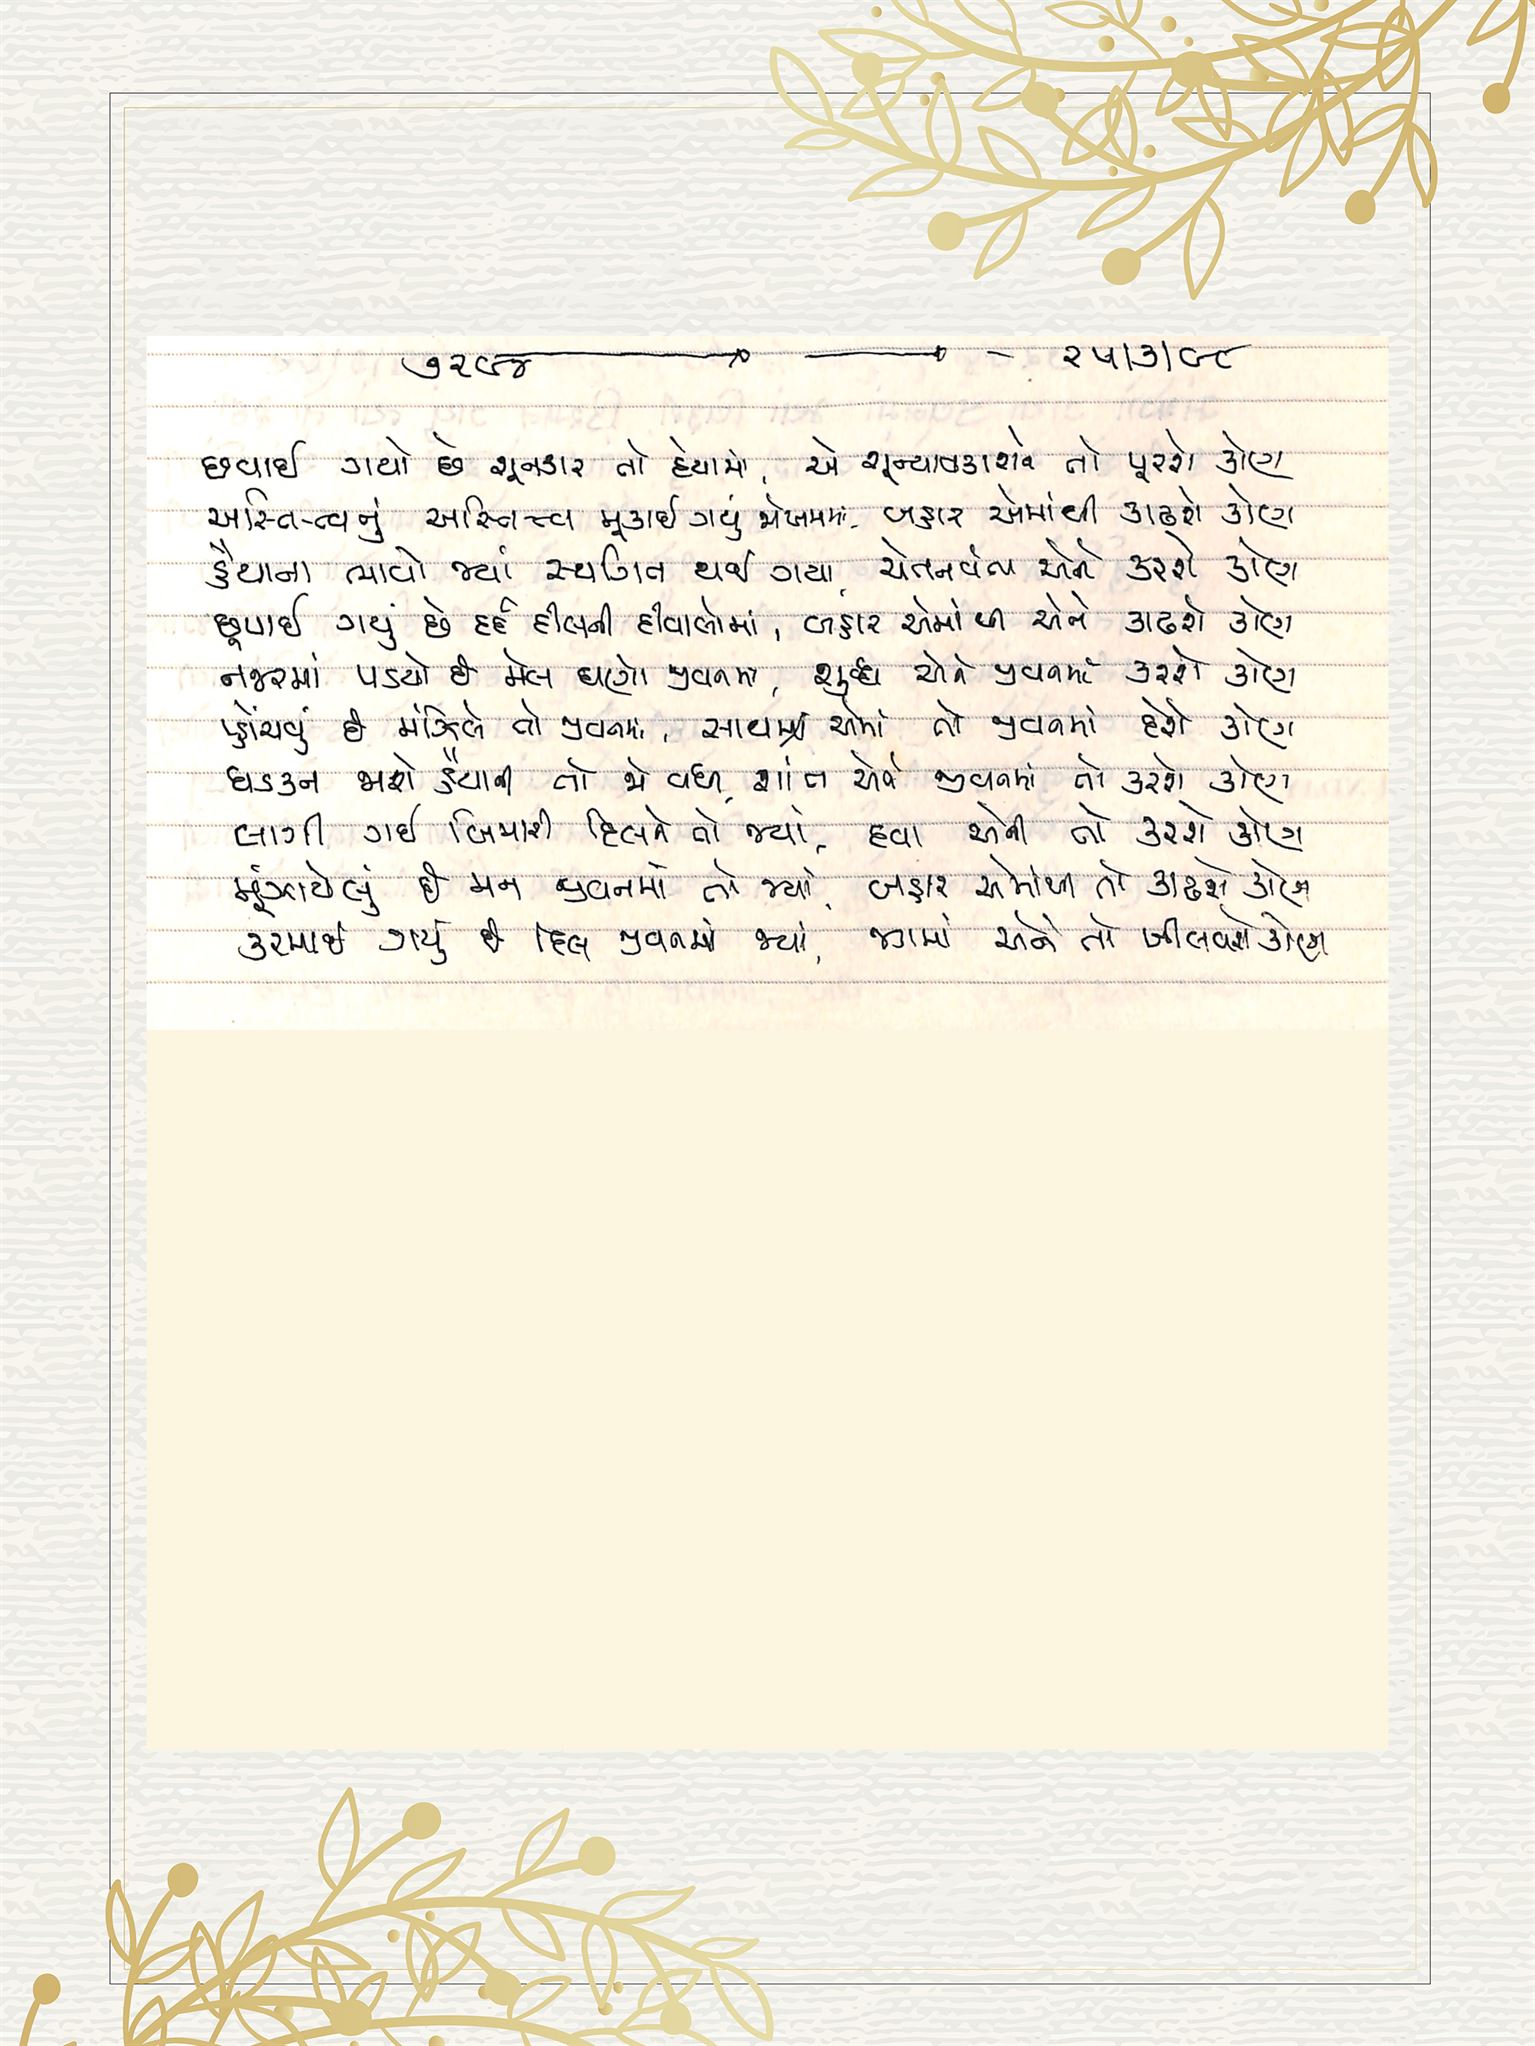 ૭૨૯૪ ૨૫/૩/૯૮
છવાઈ ગયો છે શૂનકાર તો હૈયામાં, એ શૂન્યાવકાશને તો પૂરશે કોણ
અસ્તિત્વનું અસ્તિત્ત્વ મૂકાઈ ગયું જોખમમાં, બહાર એમાંથી કાઢશે કોણ
હૈયાના ભાવો જ્યાં સ્થગિત થઈ ગયા, ચેતનવંતા એને કરશે કોણ
છૂપાઈ ગયું છે દર્દ દીલની દીવાલોમાં, બહાર એમાંથી એને કાઢશે કોણ
નજરમાં પડયો છે મેલ ઘણો જીવનમાં, શુદ્ધ એને જીવનમાં કરશે કોણ
પ્હોંચવું છે મંઝિલે તો જીવનમાં, સાથ એમાં તો જીવનમાં દેશે કોણ
ધડકન જાશે હૈયાની તો જો વધી, શાંત એને જીવનમાં તો કરશે કોણ
લાગી ગઈ બિમારી દિલને તો જ્યાં, દવા એની તો કરશે કોણ
મૂંઝાયેલું છે મન જીવનમાં તો જ્યાં, બહાર એમાંથી તો કાઢશે કોણ
કરમાઈ ગયું છે દિલ જીવનમાં જ્યાં, જગમાં એને તો ખીલવશે કોણ